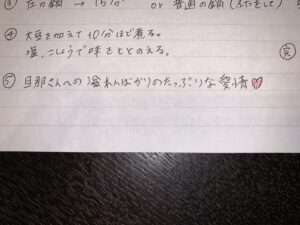 ③ 圧力鍋 → 15分 or 普通の鍋(ふたをして)
④ 大豆を加えて10分ほど煮る。
塩、こしょうで味をととのえる。
実
⑤ 旦那さんへの溢れんばかりのたっぷりな愛情♥